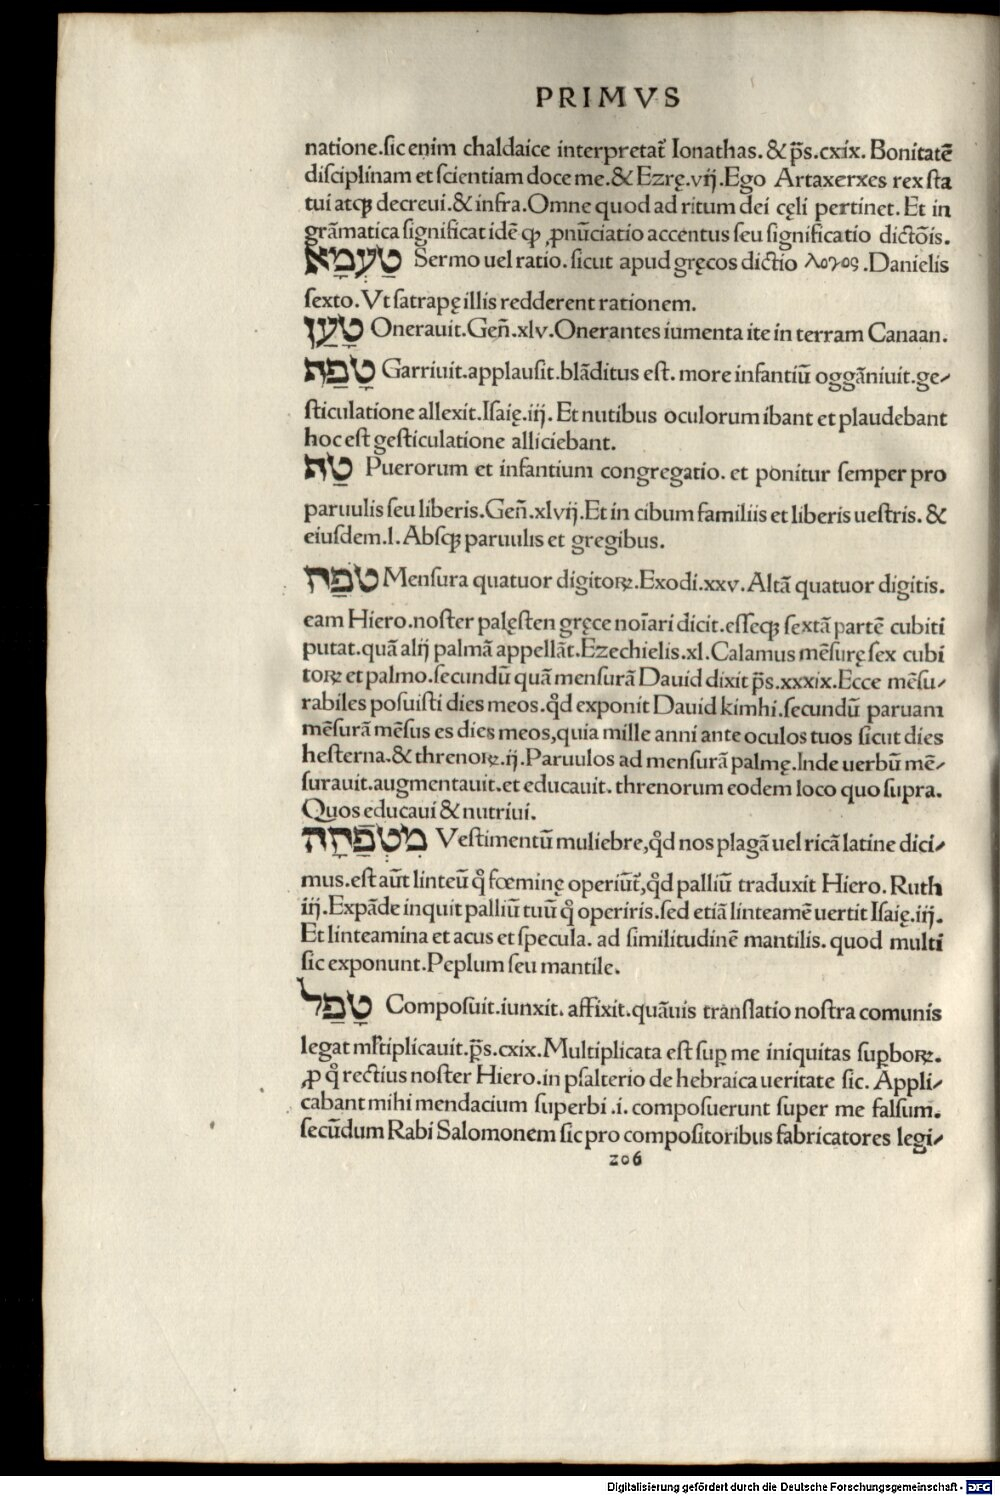 PRIMVS
natione.ſic enim chaldaice interpretat̃ Ionathas.&p̃s.cxix.Bonitatē
diſciplinam et ſcientiam doce me.&Ezrę.vij.Ego Artaxerxes rex ſta
tui atqꝫ decreui.&infra.Omne quod ad ritum dei cęli pertinet.Et in
grāmatica ſignificat idē ꝙ ꝓnūciatio accentus ſeu ſignificatio dictōis.
טַעְמָא Sermo uel ratio.ſicut apud gręcos dictio λογος.Danielis
ſexto.Vt ſatrapę illis redderent rationem.
טָעַן Onerauit.Geñ.xlv.Onerantes iumenta ite in terram Canaan.
טָפַף Garriuit.applauſit.blāditus eſt.more infantiū oggāniuit.ge⸗
ſticulatione allexit.Iſaię.iij.Et nutibus oculorum ibant et plaudebant
hoc eſt geſticulatione alliciebant.
טַף Puerorum et infantium congregatio.et ponitur ſemper pro
paruulis ſeu liberis.Geñ.xlvij.Et in cibum familiis et liberis ueſtris.&
eiuſdem.l.Abſqꝫ paruulis et gregibus.
טֹפַח Menſura quatuor digitoꝝ.Exodi.xxv.Altā quatuor digitis.
eam Hiero.noſter palęſten gręce noīari dicit.eſſeqꝫ ſextā partē cubiti
putat.quā alij palmā appellāt.Ezechielis.xl.Calamus mēſurę ſex cubi
toꝝ et palmo.ſecundū quā menſurā Dauid dixit p̃s.xxxix.Ecce mēſu⸗
rabiles poſuiſti dies meos.qd̃ exponit Dauid kimhi.ſecundū paruam
mēſurā mēſus es dies meos,quia mille anni ante oculos tuos ſicut dies
heſterna.&threnoꝝ.ij.Paruulos ad menſurā palmę.Inde uerbū mē⸗
ſurauit.augmentauit.et educauit.threnorum eodem loco quo ſupra.
Quos educaui & nutriui.
מִטְפַּחָה Veſtimentū muliebre,qd̃ nos plagā uel ricā latine dici⸗
mus.eſt aūt linteū q̊ fœminę operiūt̃,qd̃ palliū traduxit Hiero.Ruth
iij.Expāde inquit palliū tuū q̊ operiris.ſed etiā linteamē uertit Iſaię.iij.
Et linteamina et acus et ſpecula.ad ſimilitudinē mantilis.quod multi
ſic exponunt.Peplum ſeu mantile.
טָפַל Compoſuit.iunxit.affixit.quāuis tranſlatio noſtra comunis
legat ml̃tiplicauit.p̃s.cxix.Multiplicata eſt ſuꝑ me iniquitas ſuꝑboꝝ.
ꝓ q̊ rectius noſter Hiero.in pſalterio de hebraica ueritate ſic.Appli⸗
cabant mihi mendacium ſuperbi.i.compoſuerunt ſuper me falſum.
ſecūdum Rabi Salomonem ſic pro compoſitoribus fabricatores legi⸗
206
Digitalisierung gefördert durch die Deutsche Forschungsgemeinschaft - DFG